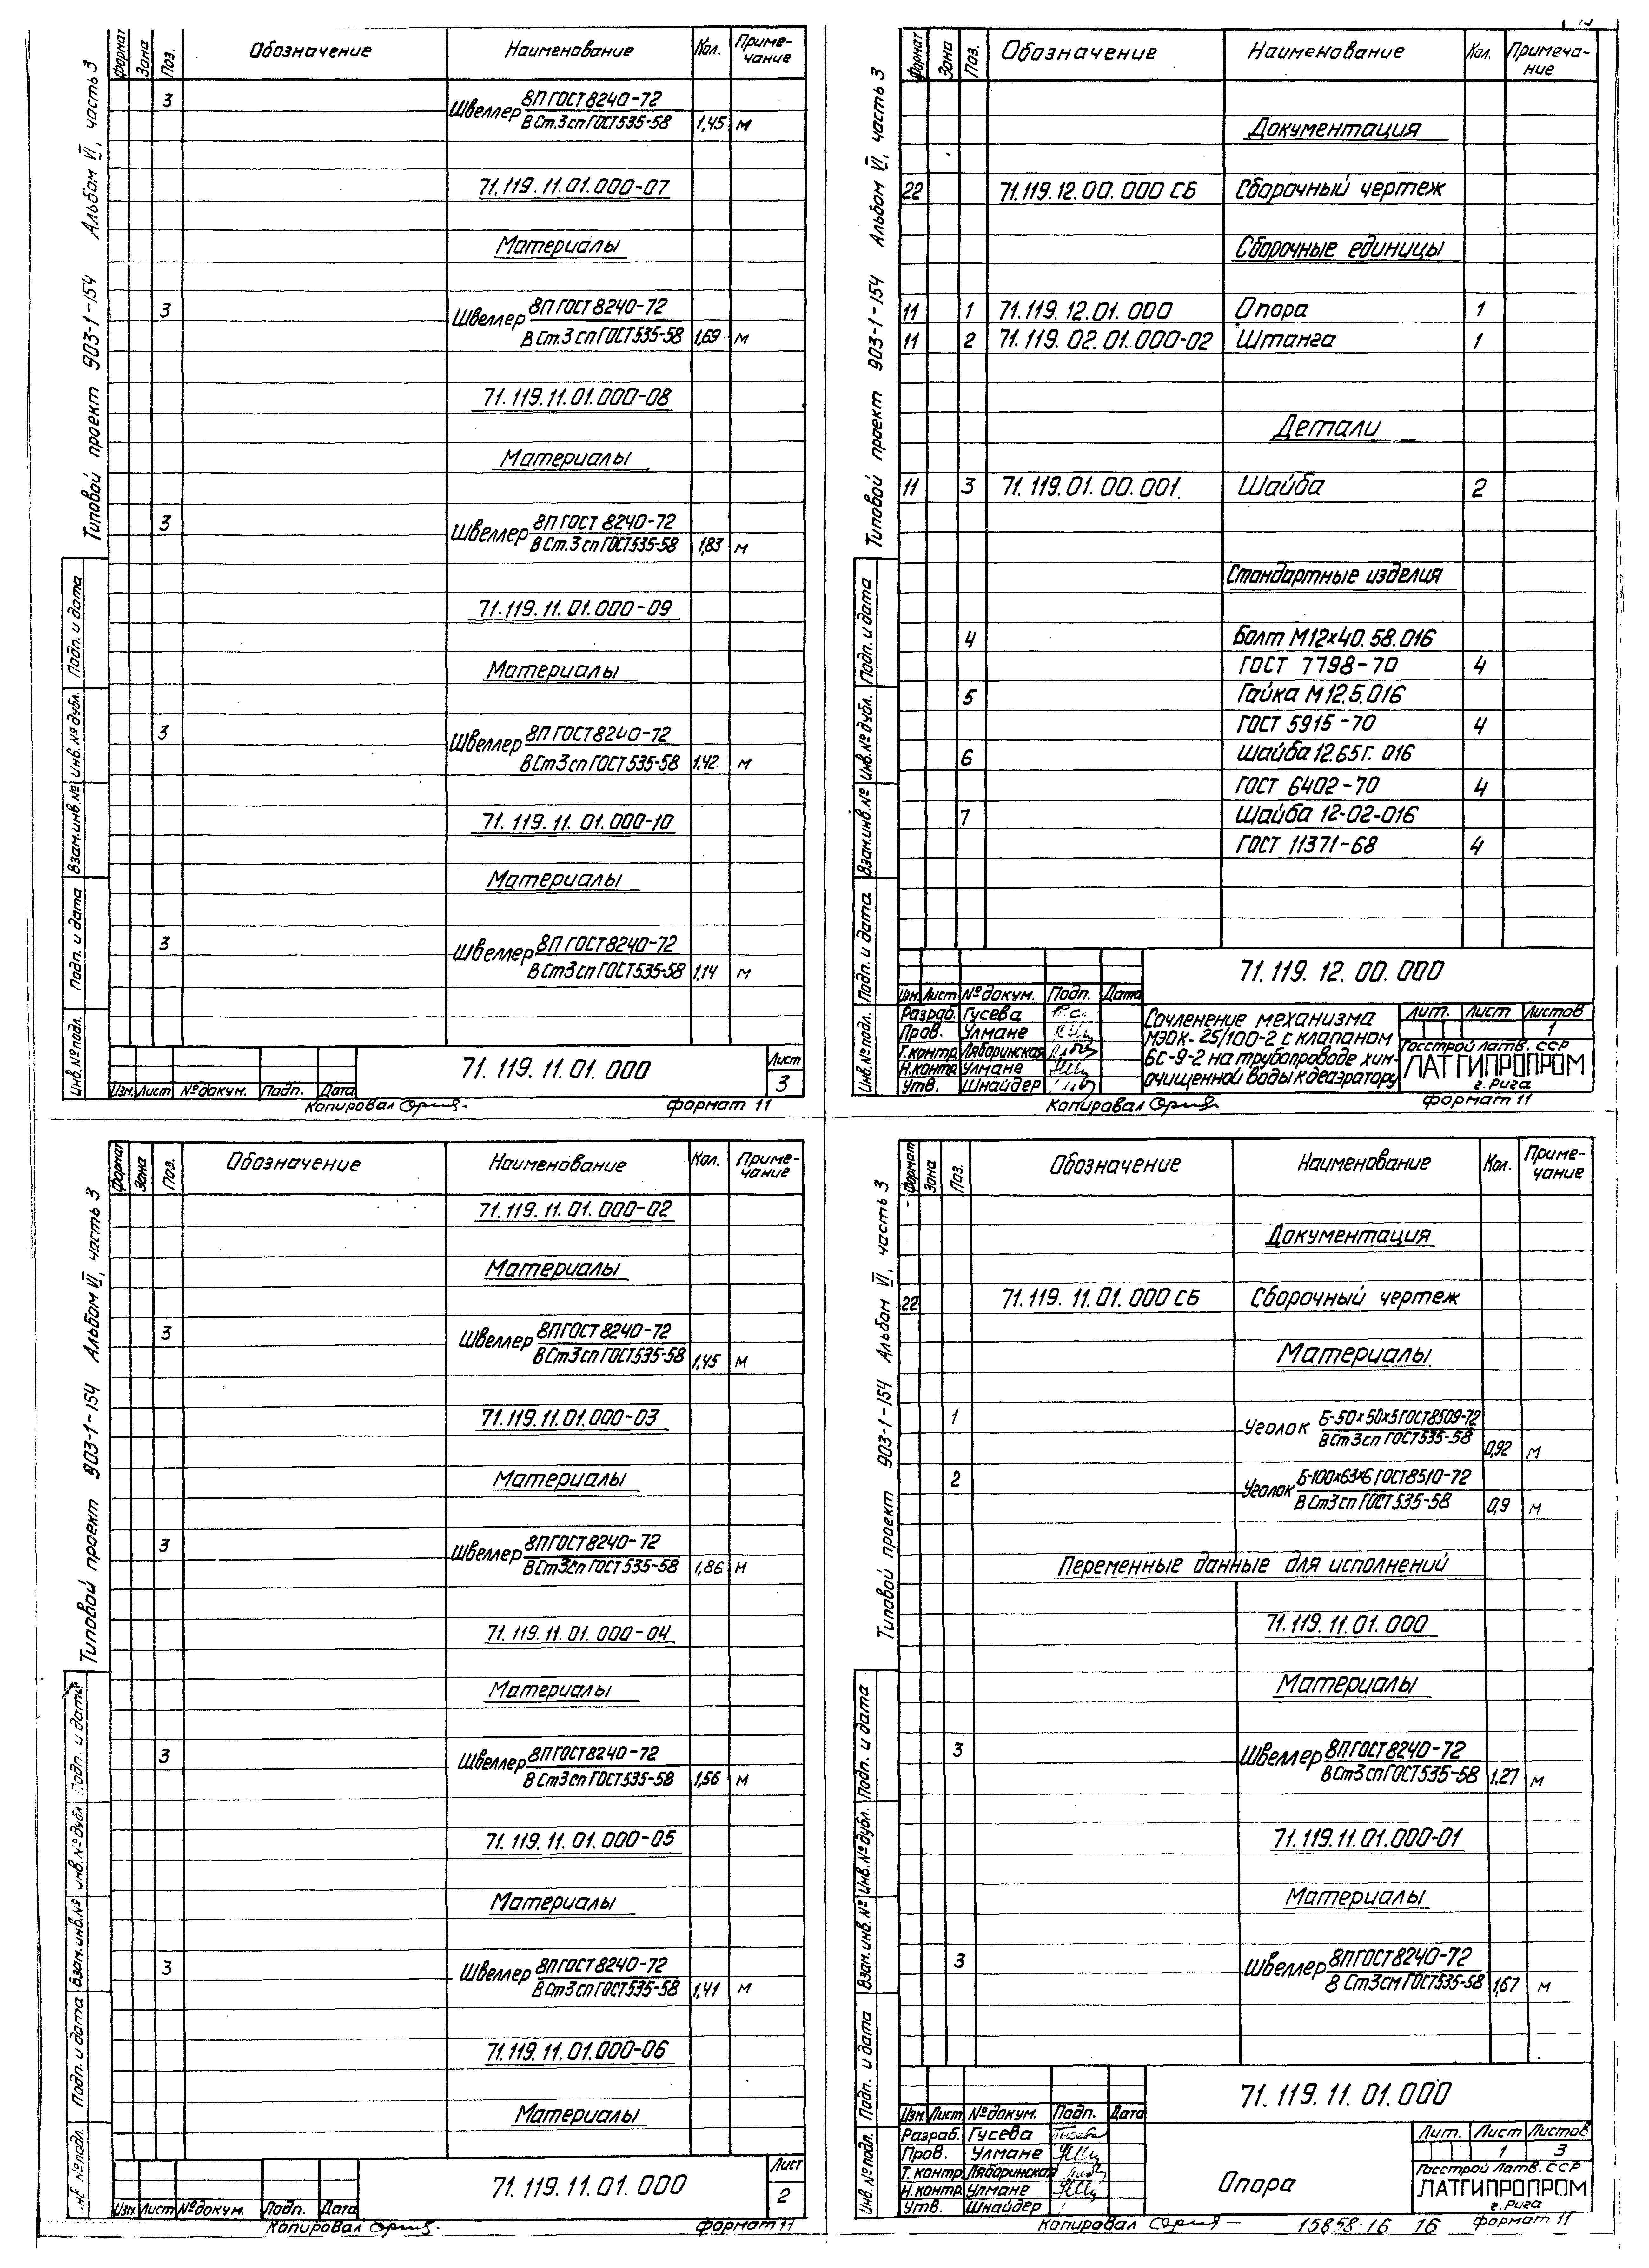 Типовой проект 903-1-154 Альбом VI, часть 3
Формат Зона Поз. Обозначение Наименование Кол. Приме-
чание
3 Швеллер 8П ГОСТ 8240-72
В Ст.3 сп ГОСТ 535-58 1,45 м
71.119.11.01.000-07
Материалы
3 Швеллер 8П ГОСТ 8240-72
В Ст.3 сп ГОСТ 535-58 1,69 м
71.119.11.01.000-08
Материалы
3 Швеллер 8П ГОСТ 8240-72
В Ст.3 сп ГОСТ 535-58 1,83 м
71.119.11.01.000-09
Материалы
3 Швеллер 8П ГОСТ 8240-72
В Ст3 сп ГОСТ 535-58 1,42 м
71.119.11.01.000-10
Материалы
3 Швеллер 8П ГОСТ 8240-72
В Ст3 сп ГОСТ 535-58 1,14 м
Инв.№ подл. Подп. и дата Взам.инв.№ Инв.№ дубл. Подп. и дата
71.119.11.01.000 Лист
3
Изм. Лист № докум. Подп. Дата
Копировал Формат 11
Типовой проект 903-1-154 Альбом VI, часть 3
Формат Зона Поз. Обозначение Наименование Кол. Примеча-
ние
Документация
22 71.119.12.00.000 СБ Сборочный чертеж
Сборочные единицы
11 1 71.119.12.01.000 Опора 1
11 2 71.119.02.01.000-02 Штанга 1
Детали
11 3 71.119.01.00.001. Шайба 2
Стандартные изделия
4 Болт М12х40.58.016
ГОСТ 7798-70 4
5 Гайка М12.5.016
ГОСТ 5915-70 4
6 Шайба 12.65Г.016
ГОСТ 6402-70 4
7 Шайба 12-02-016
ГОСТ 11371-68 4
Инв.№ подл. Подп. и дата Взам.инв.№ Инв.№ дубл. Подп. и дата
71.119.12.00.000
Изм. Лист № докум. Подп. Дата
Разраб. Гусева
Пров. Улмане
Т.контр. Ляборинская
Н.контр. Улмане
Утв. Шнайдер
Сочленение механизма
МЭОК-25/100-2 с клапаном
6С-9-2 на трубопроводе хим-
очищенной воды к деаэратору
Лит. Лист Листов
1
Госстрой Латв. ССР
ЛАТГИПРОПРОМ
г. Рига
Копировал Формат 11
Типовой проект 903-1-154 Альбом VI, часть 3
Формат Зона Поз. Обозначение Наименование Кол. Приме-
чание
71.119.11.01.000-02
Материалы
3 Швеллер 8П ГОСТ 8240-72
В Ст3 сп ГОСТ 535-58 1,45 м
71.119.11.01.000-03
Материалы
3 Швеллер 8П ГОСТ 8240-72
В Ст3 сп ГОСТ 535-58 1,86 м
71.119.11.01.000-04
Материалы
3 Швеллер 8П ГОСТ 8240-72
В Ст3 сп ГОСТ 535-58 1,56 м
71.119.11.01.000-05
Материалы
3 Швеллер 8П ГОСТ 8240-72
В Ст3 сп ГОСТ 535-58 1,41 м
71.119.11.01.000-06
Материалы
Инв.№ подл. Подп. и дата Взам.инв.№ Инв.№ дубл. Подп. и дата
71.119.11.01.000 Лист
2
Изм. Лист № докум. Подп. Дата
Копировал Формат 11
Типовой проект 903-1-154 Альбом VI, часть 3
Формат Зона Поз. Обозначение Наименование Кол. Приме-
чание
Документация
22 71.119.11.01.000 СБ Сборочный чертеж
Материалы
1 Уголок Б-50х50х5 ГОСТ 8509-72
В Ст3 сп ГОСТ 535-58 0,92 м
2 Уголок Б-100х63х6 ГОСТ 8510-72
В Ст3 сп ГОСТ 535-58 0,9 м
Переменные данные для исполнений
71.119.11.01.000
Материалы
3 Швеллер 8П ГОСТ 8240-72
В Ст3 сп ГОСТ 535-58 1,27 м
71.119.11.01.000-01
Материалы
3 Швеллер 8П ГОСТ 8240-72
В Ст3 см ГОСТ 535-58 1,67 м
Инв.№ подл. Подп. и дата Взам.инв.№ Инв.№ дубл. Подп. и дата
71.119.11.01.000
Изм. Лист № докум. Подп. Дата
Разраб. Гусева
Пров. Улмане
Т.контр. Ляборинская
Н.контр. Улмане
Утв. Шнайдер
Опора
Лит. Лист Листов
1 3
Госстрой Латв. ССР
ЛАТГИПРОПРОМ
г. Рига
Копировал 15858-16 16 Формат 11